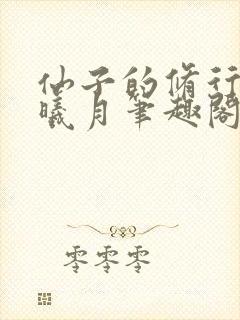 仙子的脩行
曦月筆趣閣
零零零